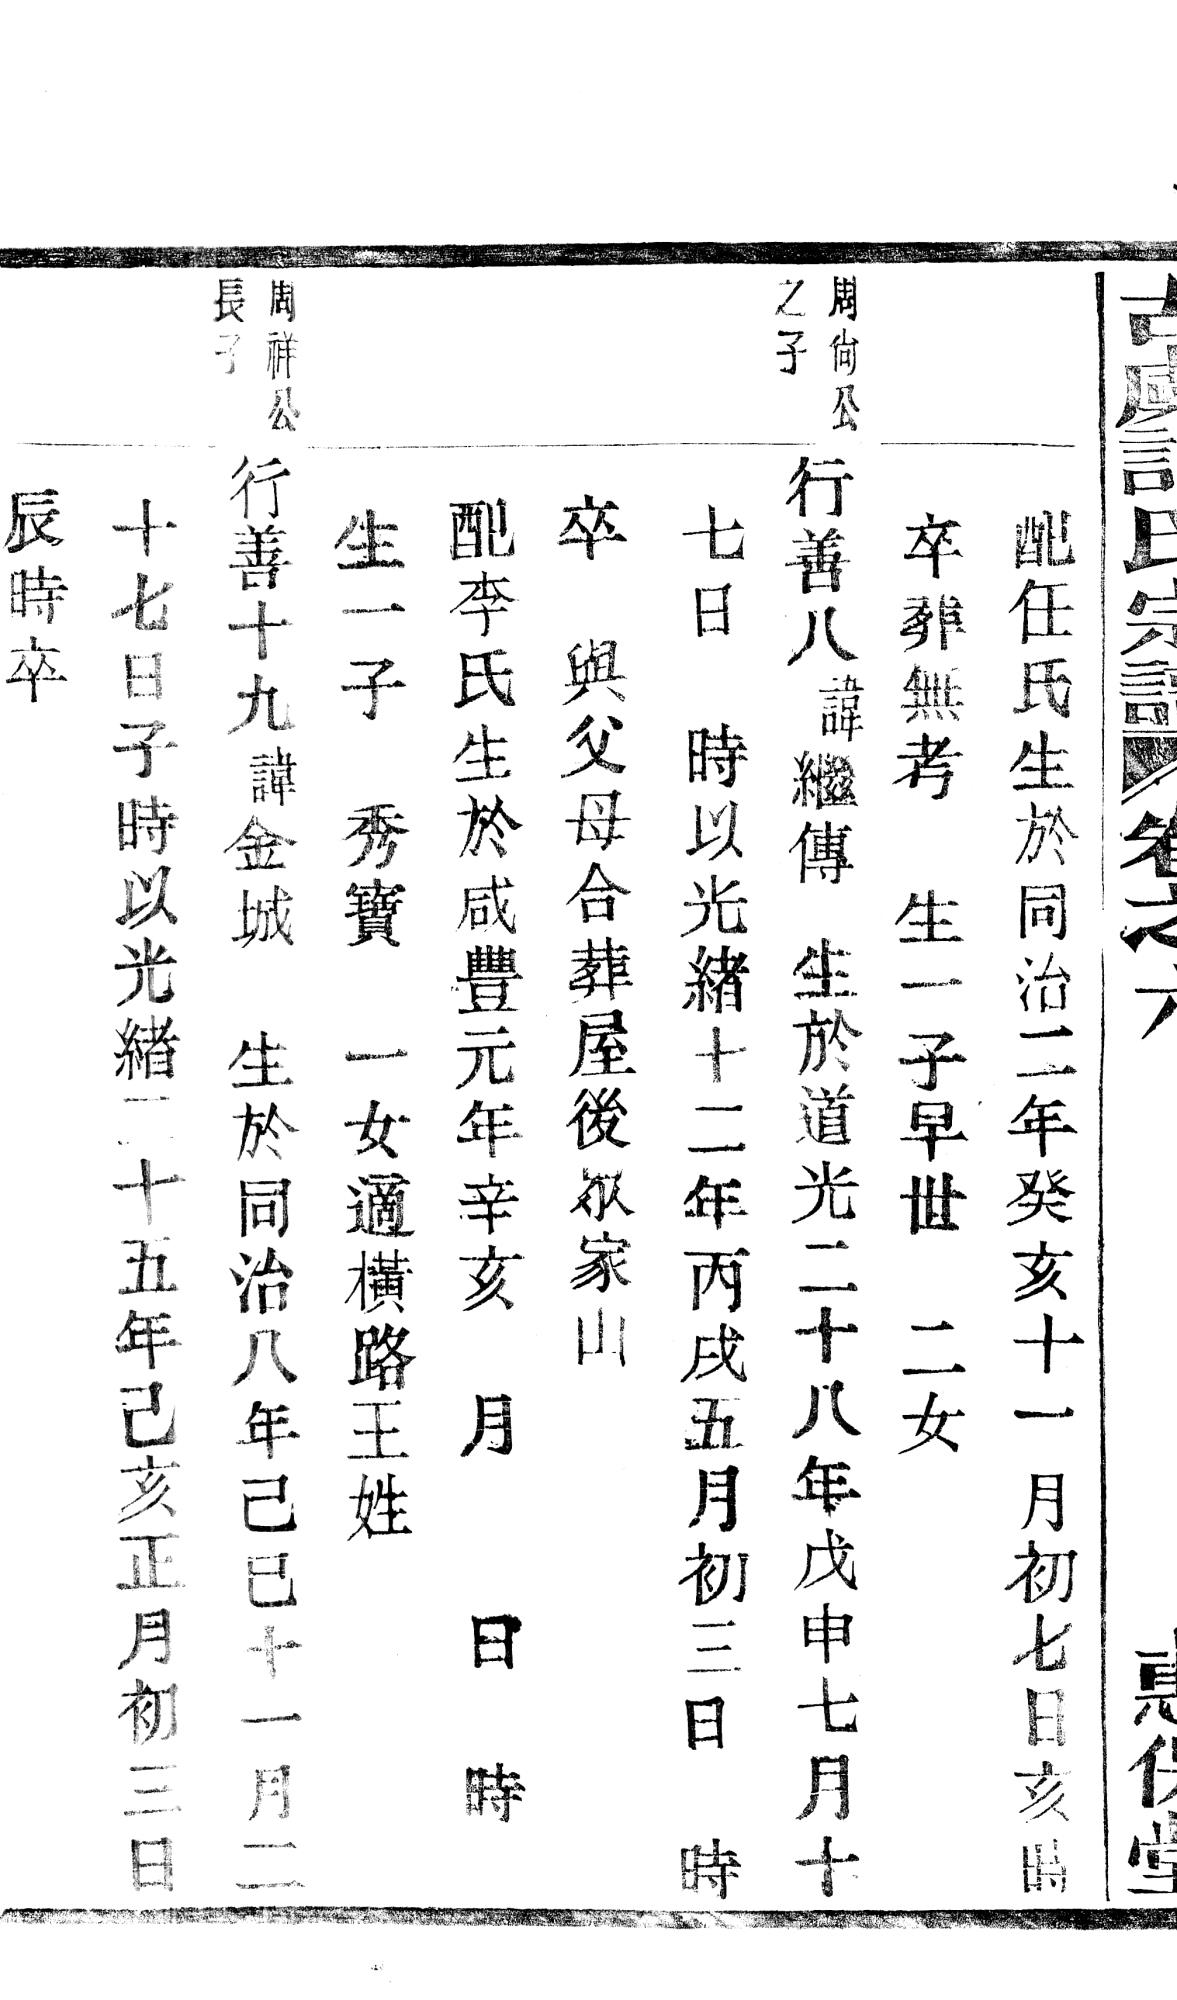 氏宗譜 卷之六 惠保堂
配任氏生於同治二年癸亥十一月初七日亥時
卒葬無考 生一子早世 二女
周尙公
之子
行善八諱繼傳 生於道光二十八年戊申七月十
七日 時以光緒十二年丙戌五月初三日 時
卒 與父母合葬屋後家山
配李氏生於咸豐元年辛亥 月 日 時
生一子 秀寶 一女適橫路王姓
周祥公
長子
行善十九諱金城 生於同治八年己巳十一月二
十七日子時以光緒二十五年己亥正月初三日
辰時卒